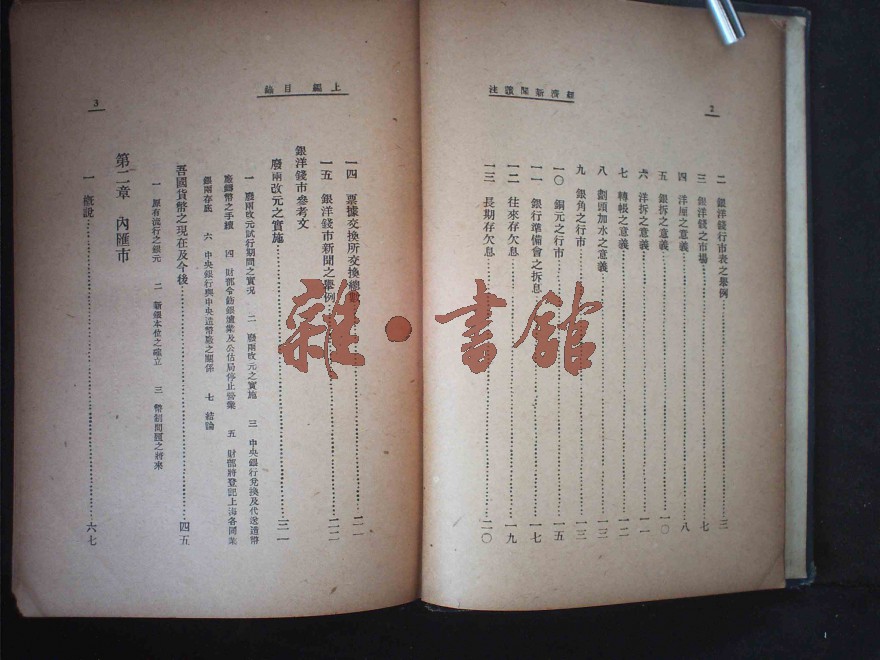 2
經濟新聞讀法
二　銀洋錢行市表之舉例………三
三　銀洋錢之市場………七
四　洋厘之意義………八
五　銀拆之意義………一〇
六　洋拆之意義………一一
七　轉帳之意義………一二
八　劃頭加水之意義………一三
九　銀角之行市………一三
一〇　銅元之行市………一五
一一　銀行準備會之拆息………一七
一二　往來存欠息………一九
一三　長期存欠息………二〇
上編　目錄
3
一四　票據交換所交換總數………二一
一五　銀洋錢市新聞之舉例………二二
銀洋錢市參考文
廢兩改元之實施………三一
一　廢兩改元試行期間之實況　二　廢兩改元之實施　三　中央銀行兌換及代送造幣
廠鑄幣之手續　四　財部令飭銀爐業及公估局停止營業　五　財部將登記上海各同業
銀兩存底　六　中央銀行與中央造幣廠之關係　七　結論
吾國貨幣之現在及今後………四五
一　原有流行之銀元　二　新銀本位之確立　三　幣制問題之將來
第二章　內匯市
一　概說………六七
雜·書館